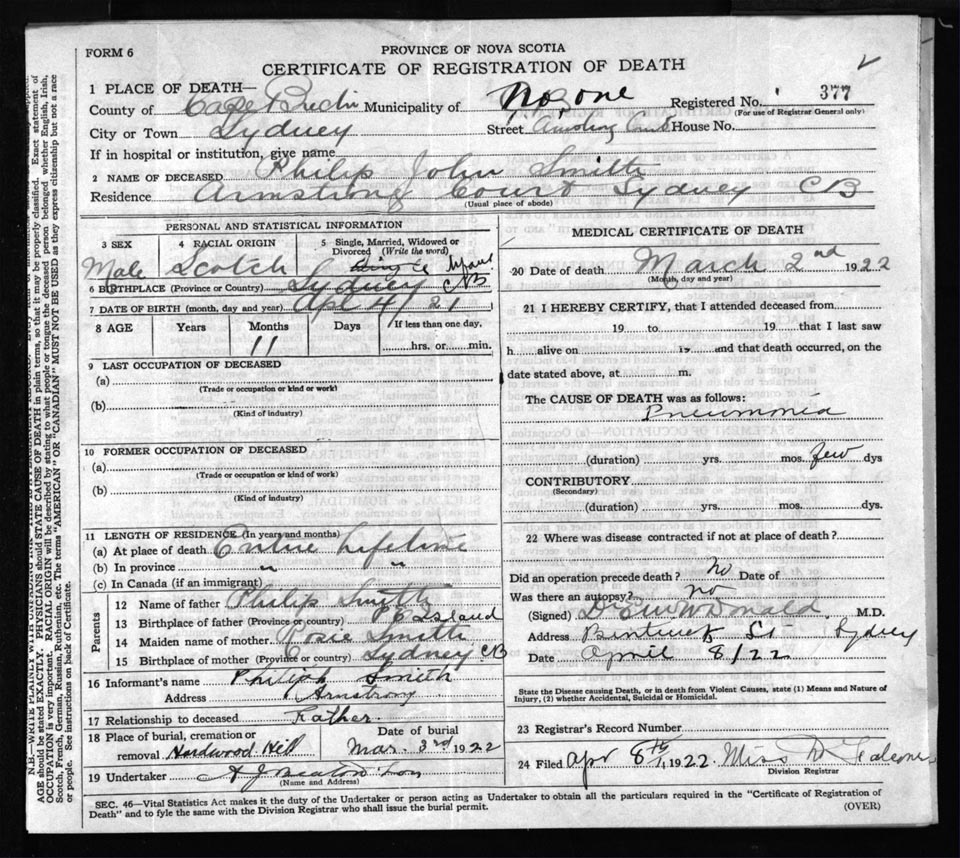 FORM 6
PROVINCE OF NOVA SCOTIA
CERTIFICATE OF REGISTRATION OF DEATH
1 PLACE OF DEATH—
County of Cape Breton Municipality of No. one Registered No. 377
(For use of Registrar General only)
City or Town Sydney Street House No.
If in hospital or institution, give name
2 NAME OF DECEASED Philip John Smith
Residence Armstrong Court Sydney CB
(Usual place of abode)
PERSONAL AND STATISTICAL INFORMATION
3 SEX 4 RACIAL ORIGIN 5 Single, Married, Widowed or Divorced (Write the word)
Male Scotch
6 BIRTHPLACE (Province or Country) Sydney CB
7 DATE OF BIRTH (month, day and year) Apl 4 / 21
8 AGE Years Months Days If less than one day,
11 hrs. or min.
9 LAST OCCUPATION OF DECEASED
(a)
(Trade or occupation or kind of work)
(b)
(Kind of industry)
10 FORMER OCCUPATION OF DECEASED
(a)
(Trade or occupation or kind of work)
(b)
(Kind of industry)
11 LENGTH OF RESIDENCE (In years and months)
(a) At place of death Entire Lifetime
(b) In province " "
(c) In Canada (if an immigrant)
Parents
12 Name of father Philip Smith
13 Birthplace of father (Province or country) P E Island
14 Maiden name of mother Rosie Smith
15 Birthplace of mother (Province or country) Sydney CB
16 Informant's name Philiph Smith
Address Armstrong
17 Relationship to deceased Father.
18 Place of burial, cremation or removal Hardwood Hill
Date of burial
Mar. 3rd 1922
19 Undertaker A J Beaton & Son
(Name and Address)
MEDICAL CERTIFICATE OF DEATH
20 Date of death March 2nd 1922
(Month, day and year)
21 I HEREBY CERTIFY, that I attended deceased from
19 to 19 that I last saw
h alive on 19 and that death occurred, on the
date stated above, at m.
The CAUSE OF DEATH was as follows:
Pneumonia
(duration) yrs. mos. few dys
CONTRIBUTORY
(Secondary)
(duration) yrs. mos. dys.
22 Where was disease contracted if not at place of death?
Did an operation precede death? No Date of
Was there an autopsy? no
(Signed) M.D.
Address St Sydney
Date April 8/22
State the Disease causing Death, or in death from Violent Causes, state (1) Means and Nature of
Injury, (2) whether Accidental, Suicidal or Homicidal.
23 Registrar's Record Number
24 Filed Apr 8th, 1922 Miss
Division Registrar
SEC. 46—Vital Statistics Act makes it the duty of the Undertaker or person acting as Undertaker to obtain all the particulars required in the "Certificate of Registration of
Death" and to fyle the same with the Division Registrar who shall issue the burial permit. (OVER)
AGE should be stated EXACTLY. PHYSICIANS should STATE CAUSE OF DEATH in plain terms, so that it may be properly classified. Exact statement of
OCCUPATION is very important. RACIAL ORIGIN will be described by stating to what people or tongue the deceased person belonged whether English, Irish,
Scotch, French, German, Russian, Ruthenian, etc. The terms "AMERICAN" OR "CANADIAN" MUST NOT BE USED as they express citizenship but not a race
or people. See instructions on back of Certificate.